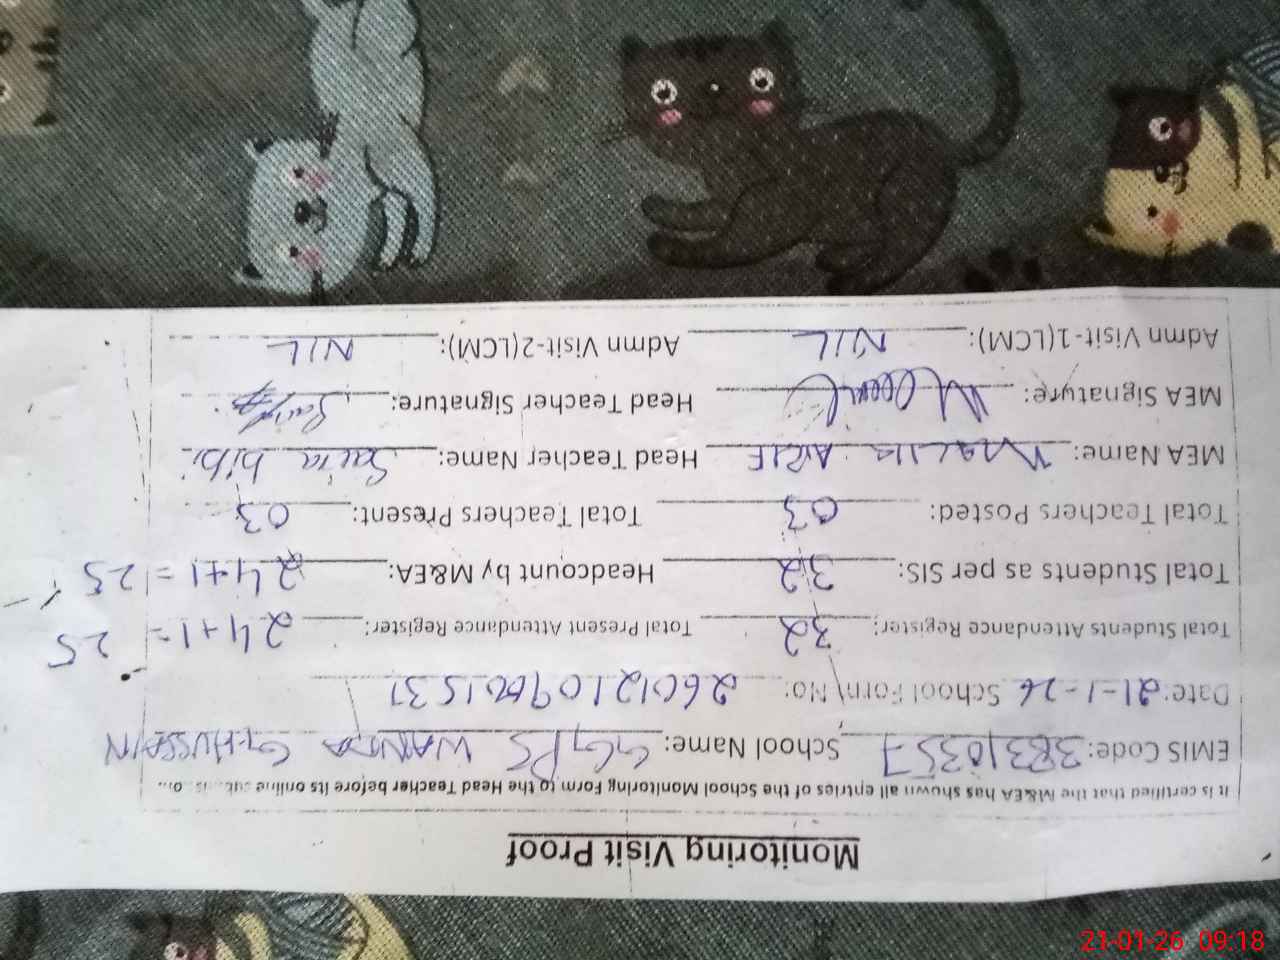 Monitoring Visit Proof
It is certified that the M&EA has shown all entries of the School Monitoring Form to the Head Teacher before its online
EMIS Code: 38310357 School Name: GGPS WANDA G.HUSSAIN
Date: 21-1-26 School Form No:
Total Students Attendance Register: 32 Total Present Attendance Register: 24+1= 25
Total Students as per SIS: 32 Headcount by M&EA: 24+1=25
Total Teachers Posted: 03 Total Teachers Present: 03
MEA Name: Head Teacher Name: Saira bibi
MEA Signature: Head Teacher Signature:
Admn Visit-1(LCM): NIL Admn Visit-2(LCM): NIL
21-01-26 09:18